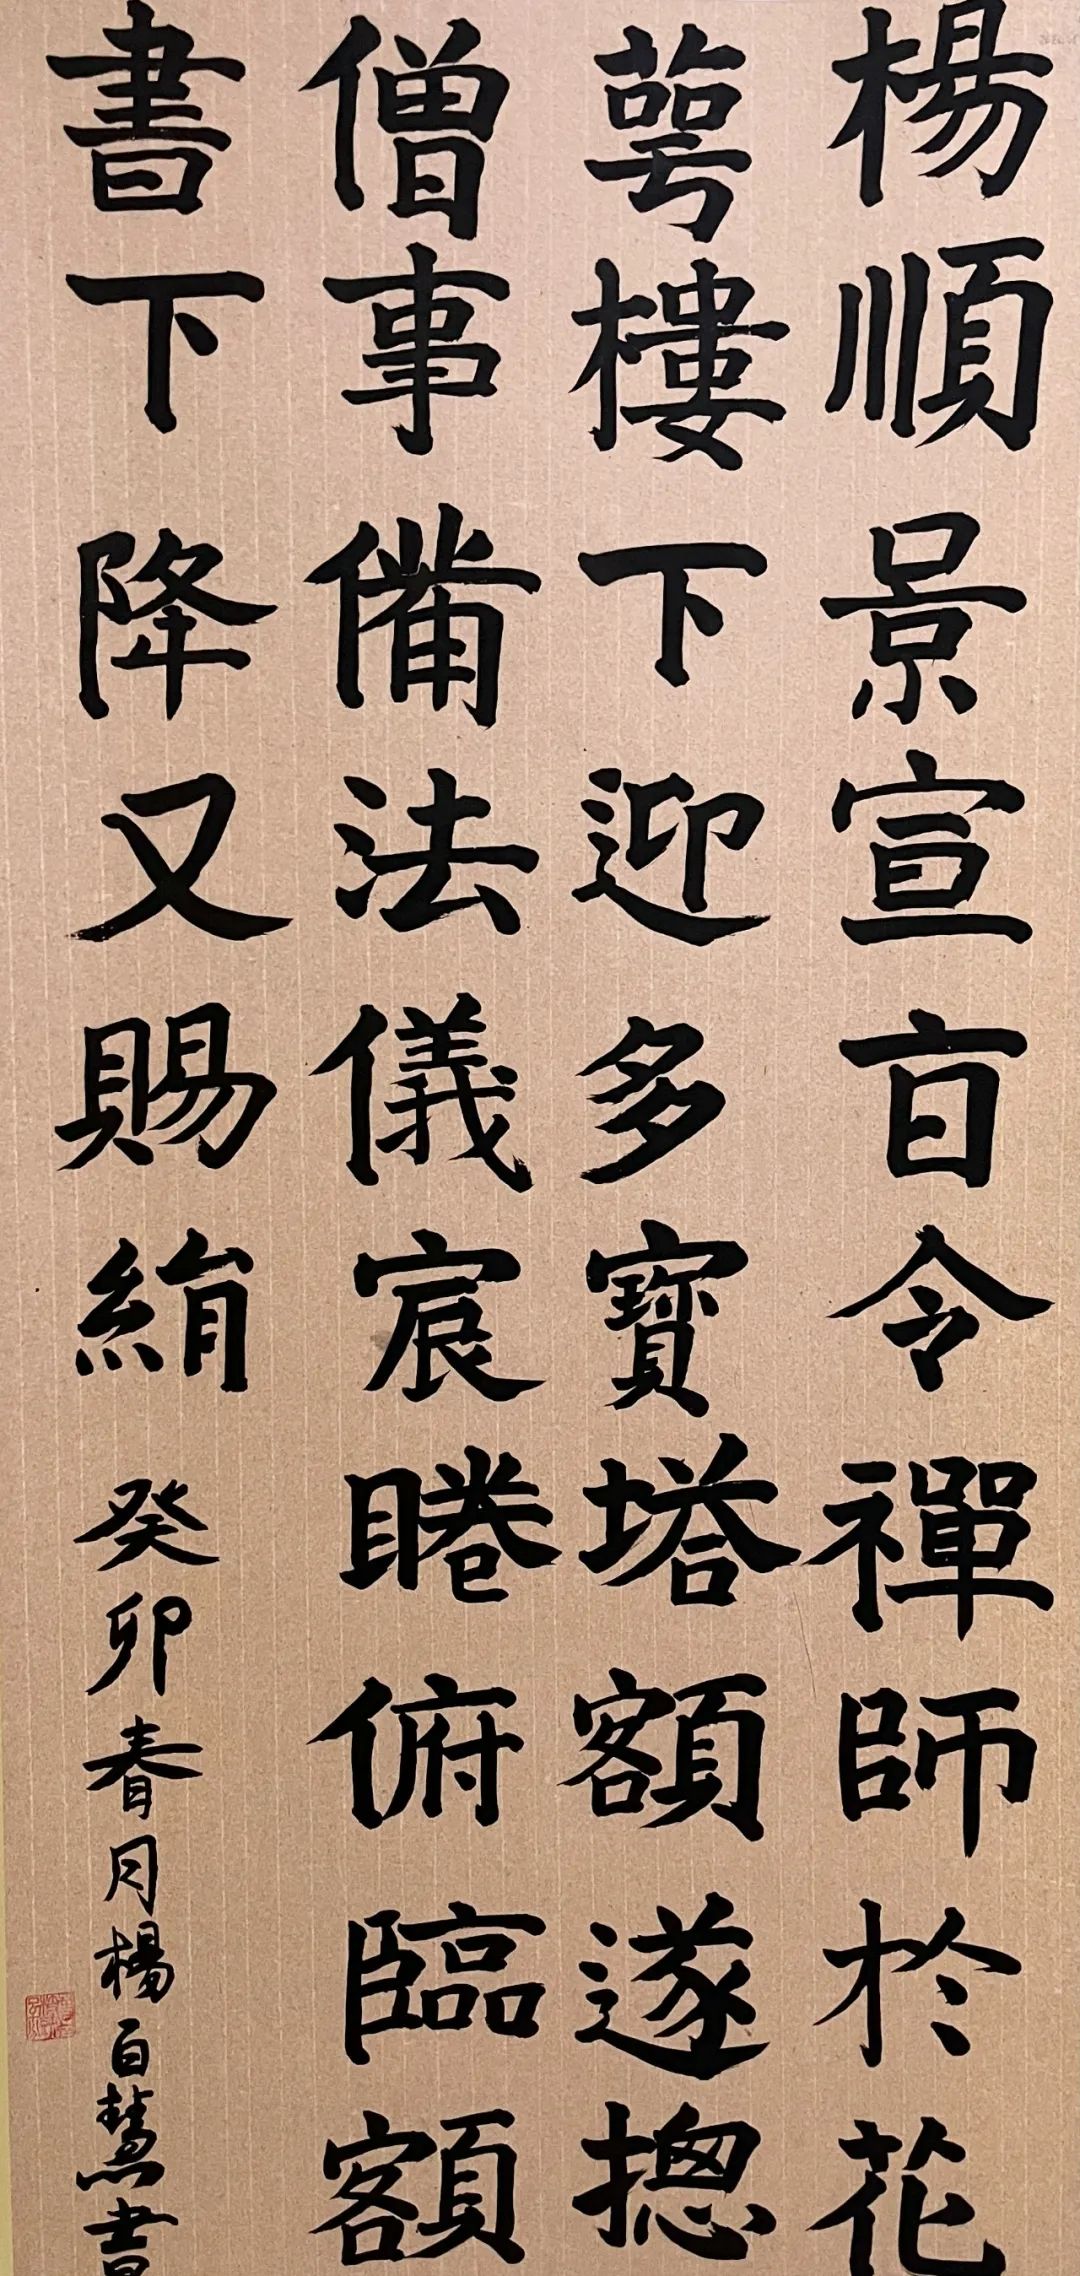 楊順景宣㫖令禪師於花
萼樓下迎多寶塔額遂揔
僧事備法儀宸睠俯臨額
書下降又賜絹 癸卯春月楊百慧書